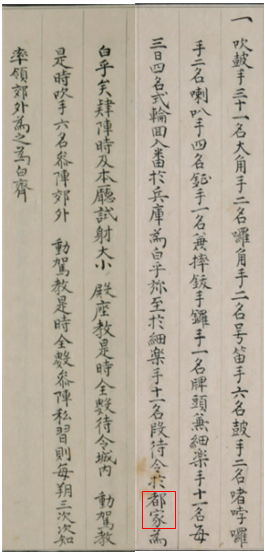 一 吹鼓手三十一名大角手二名囉角手二名号笛手六名鼓手二名啫哱囉
手二名喇叭手四名鉦手一名兼摔鈸手鑼手一名脾頭兼細樂手十一名每
三日四名式輪回入番於兵庫爲白乎旀至於細樂手十一名段待令於都家爲
白乎矣肄陣時及本廳試射大小 殿座教是時全數待令城內 動駕教
是時吹手六名叅陣郊外 動駕教是時全數叅陣私習則每朔三次次知
率領郊外爲之爲白齊